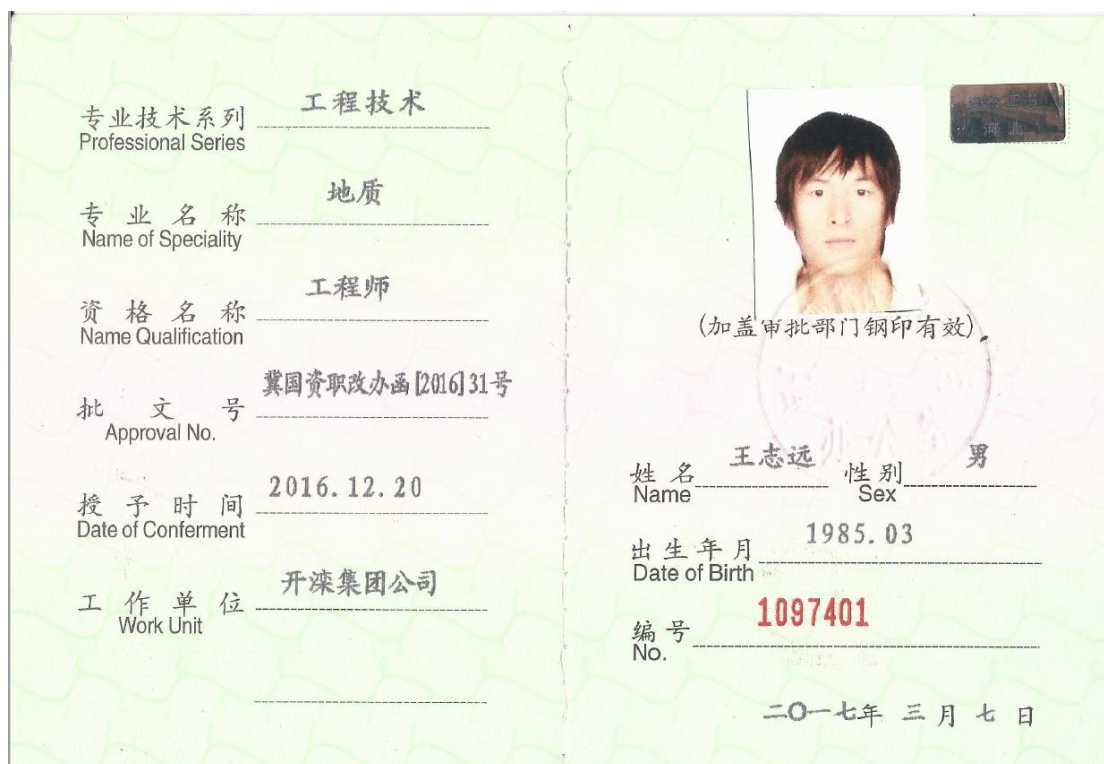 专业技术系列 工程技术
Professional Series
专业名称 地质
Name of Speciality
资格名称 工程师
Name Qualification
批文号 冀国资职改办函[2016]31号
Approval No.
授予时间 2016.12.20
Date of Conferment
工作单位 开滦集团公司
Work Unit
河北
(加盖审批部门钢印有效)
办公室
姓名 王志远 性别 男
Name Sex
出生年月 1985.03
Date of Birth
编号 1097401
No.
二〇一七年 三月七日